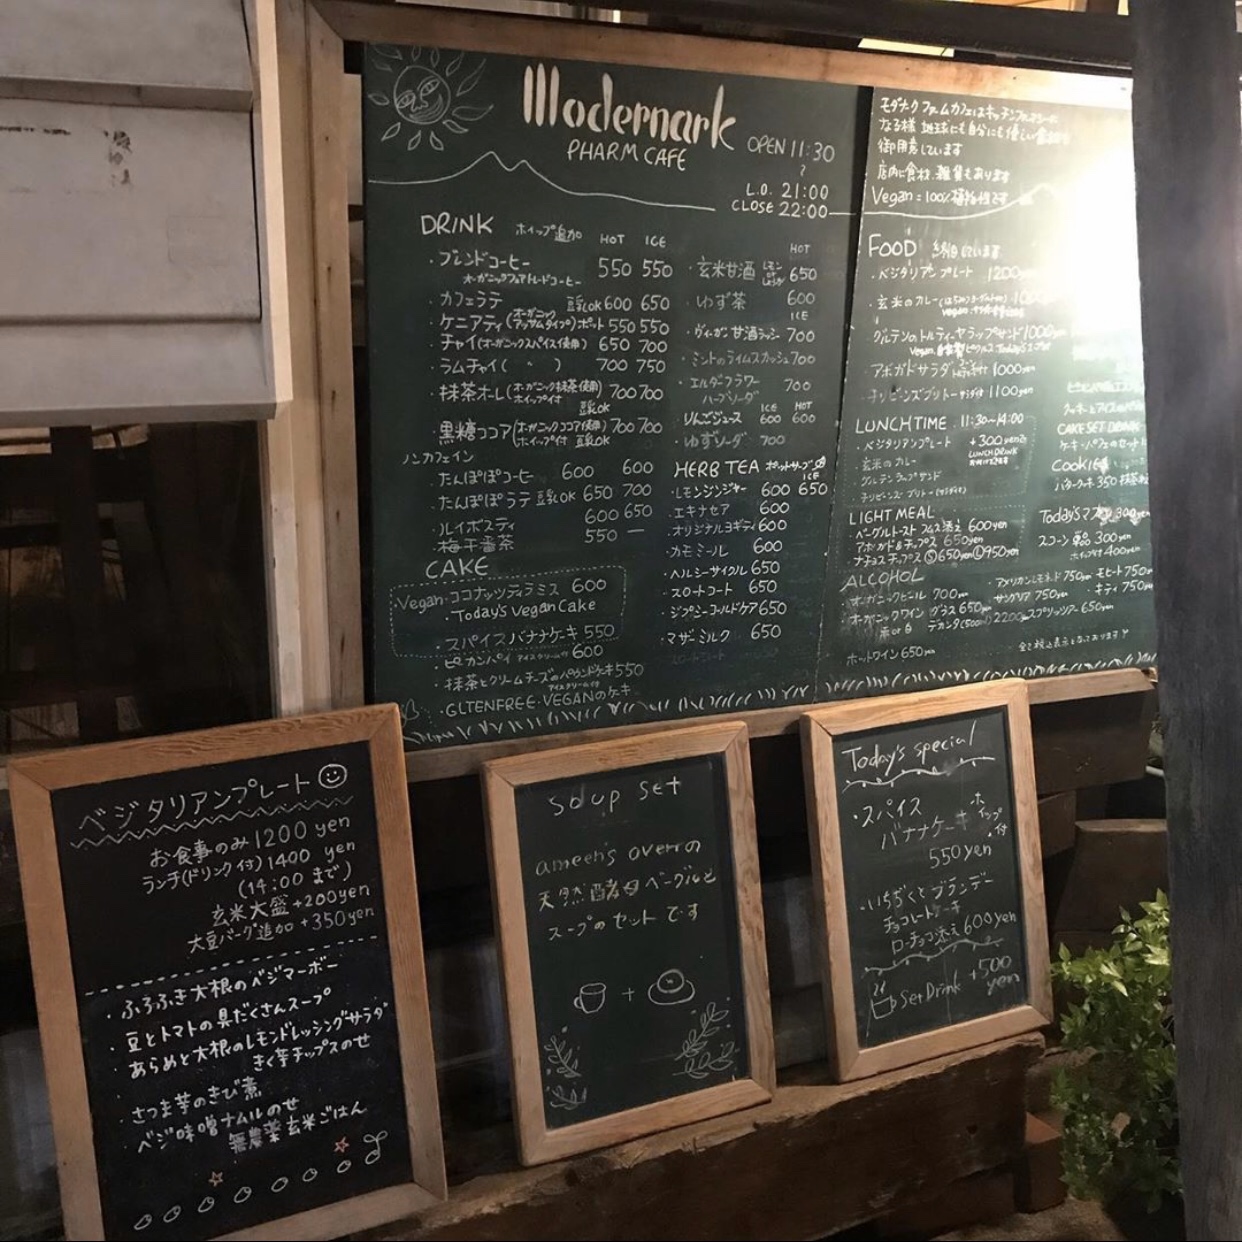 Modernark
PHARM CAFE
OPEN 11:30
L.O. 21:00
CLOSE 22:00
DRINK ホイップ追加 HOT ICE
・ブレンドコーヒー 550 550
オーガニックフェアトレードコーヒー
・カフェラテ 豆乳ok 600 650
・ケニアティ(オーガニック アッサムタイプ)ポット 550 550
・チャイ(オーガニックスパイス使用) 650 700
・ラムチャイ( 〃 ) 700 750
・抹茶オーレ(オーガニック抹茶使用) 700 700
ホイップ付 豆乳ok
・黒糖ココア(オーガニックココア使用) 700 700
ホイップ付 豆乳ok
ノンカフェイン
・たんぽぽコーヒー 600 600
・たんぽぽラテ 豆乳ok 650 700
・ルイボスティ 600 650
・梅干番茶 550 —
CAKE
Vegan・ココナッツティラミス 600
・Today's Vegan Cake
・スパイスバナナケーキ 550
・ピカンパイ アイスクリーム付 600
・抹茶とクリームチーズのパウンドケーキ 550
アイスクリーム付
・GLTENFREE・VEGANのケーキ
HOT
・玄米甘酒 レモン or しょうが 650
・ゆず茶 600
ICE
・ヴィーガン甘酒ラッシー 700
・ミントのライムスカッシュ 700
・エルダーフラワー
ハーブソーダ 700
ICE HOT
りんごジュース 600 600
・ゆずソーダ 700
HERB TEA ポットサーブ
ICE
・レモンジンジャー 600 650
・エキナセア 600
・オリジナルヨギティ 600
・カモミール 600
・ヘルシーサイクル 650
・スロートコート 650
・ジプシーコールドケア 650
・マザーミルク 650
なる様 地球にも自分にも優しい
御用意しています
店内に食材、雑貨もあります
Vegan = 100% 植物性です
FOOD
・ベジタリアンプレート 1200
・玄米のカレー
・グルテンのトルティーヤラップサンド 1000yen
・アボガドサラダ 1000yen
・チリビーンズブリトー 1100yen
LUNCH TIME 11:30~14:00
・ベジタリアンプレート +300yenで
・玄米のカレー LUNCH DRINK
LIGHT MEAL
・ベーグルトースト フムス添え 600yen
・アボカド&チップス 650yen
・ナチョスチップス Ⓢ650yen Ⓛ950yen
ALCOHOL
・オーガニックビール 700yen
・オーガニックワイン グラス 650yen
赤or白 デカンタ(500ml) 2200yen
・ホットワイン 650yen
・アメリカンレモネード 750yen
・サングリア 750yen
・スプリッツァー 650yen
・モヒート 750
・キティ 750yen
CAKE SET DRINK
Cookie
Today'sマフィン 300yen
スコーン 単品 300yen
ホイップ付 400yen
全て税込表示となっております
ベジタリアンプレート
お食事のみ 1200 yen
ランチ(ドリンク付) 1400 yen
(14:00 まで)
玄米大盛 +200yen
大豆バーグ追加 +350yen
・ふろふき大根のベジマーボー
・豆とトマトの具だくさんスープ
・あらめと大根のレモンドレッシングサラダ
きく芋チップスのせ
・さつま芋のきび煮
・ベジ味噌ナムルのせ
無農薬玄米ごはん
soup set
ameen's ovenの
天然酵母ベーグルと
スープのセットです
+
Today's special
・スパイス
バナナケーキ ホイップ付
550yen
・いちじくとブランデー
チョコレートケーキ
ローチョコ添え 600yen
Set Drink +500
yen